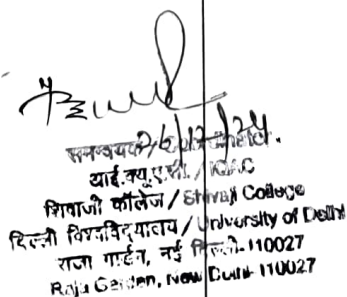 समन्वयक / Coordinator
आई.क्यू.ए.सी. / IQAC
शिवाजी कॉलेज / Shivaji College
दिल्ली विश्वविद्यालय / University of Delhi
राजा गार्डन, नई दिल्ली-110027
Raja Garden, New Delhi-110027